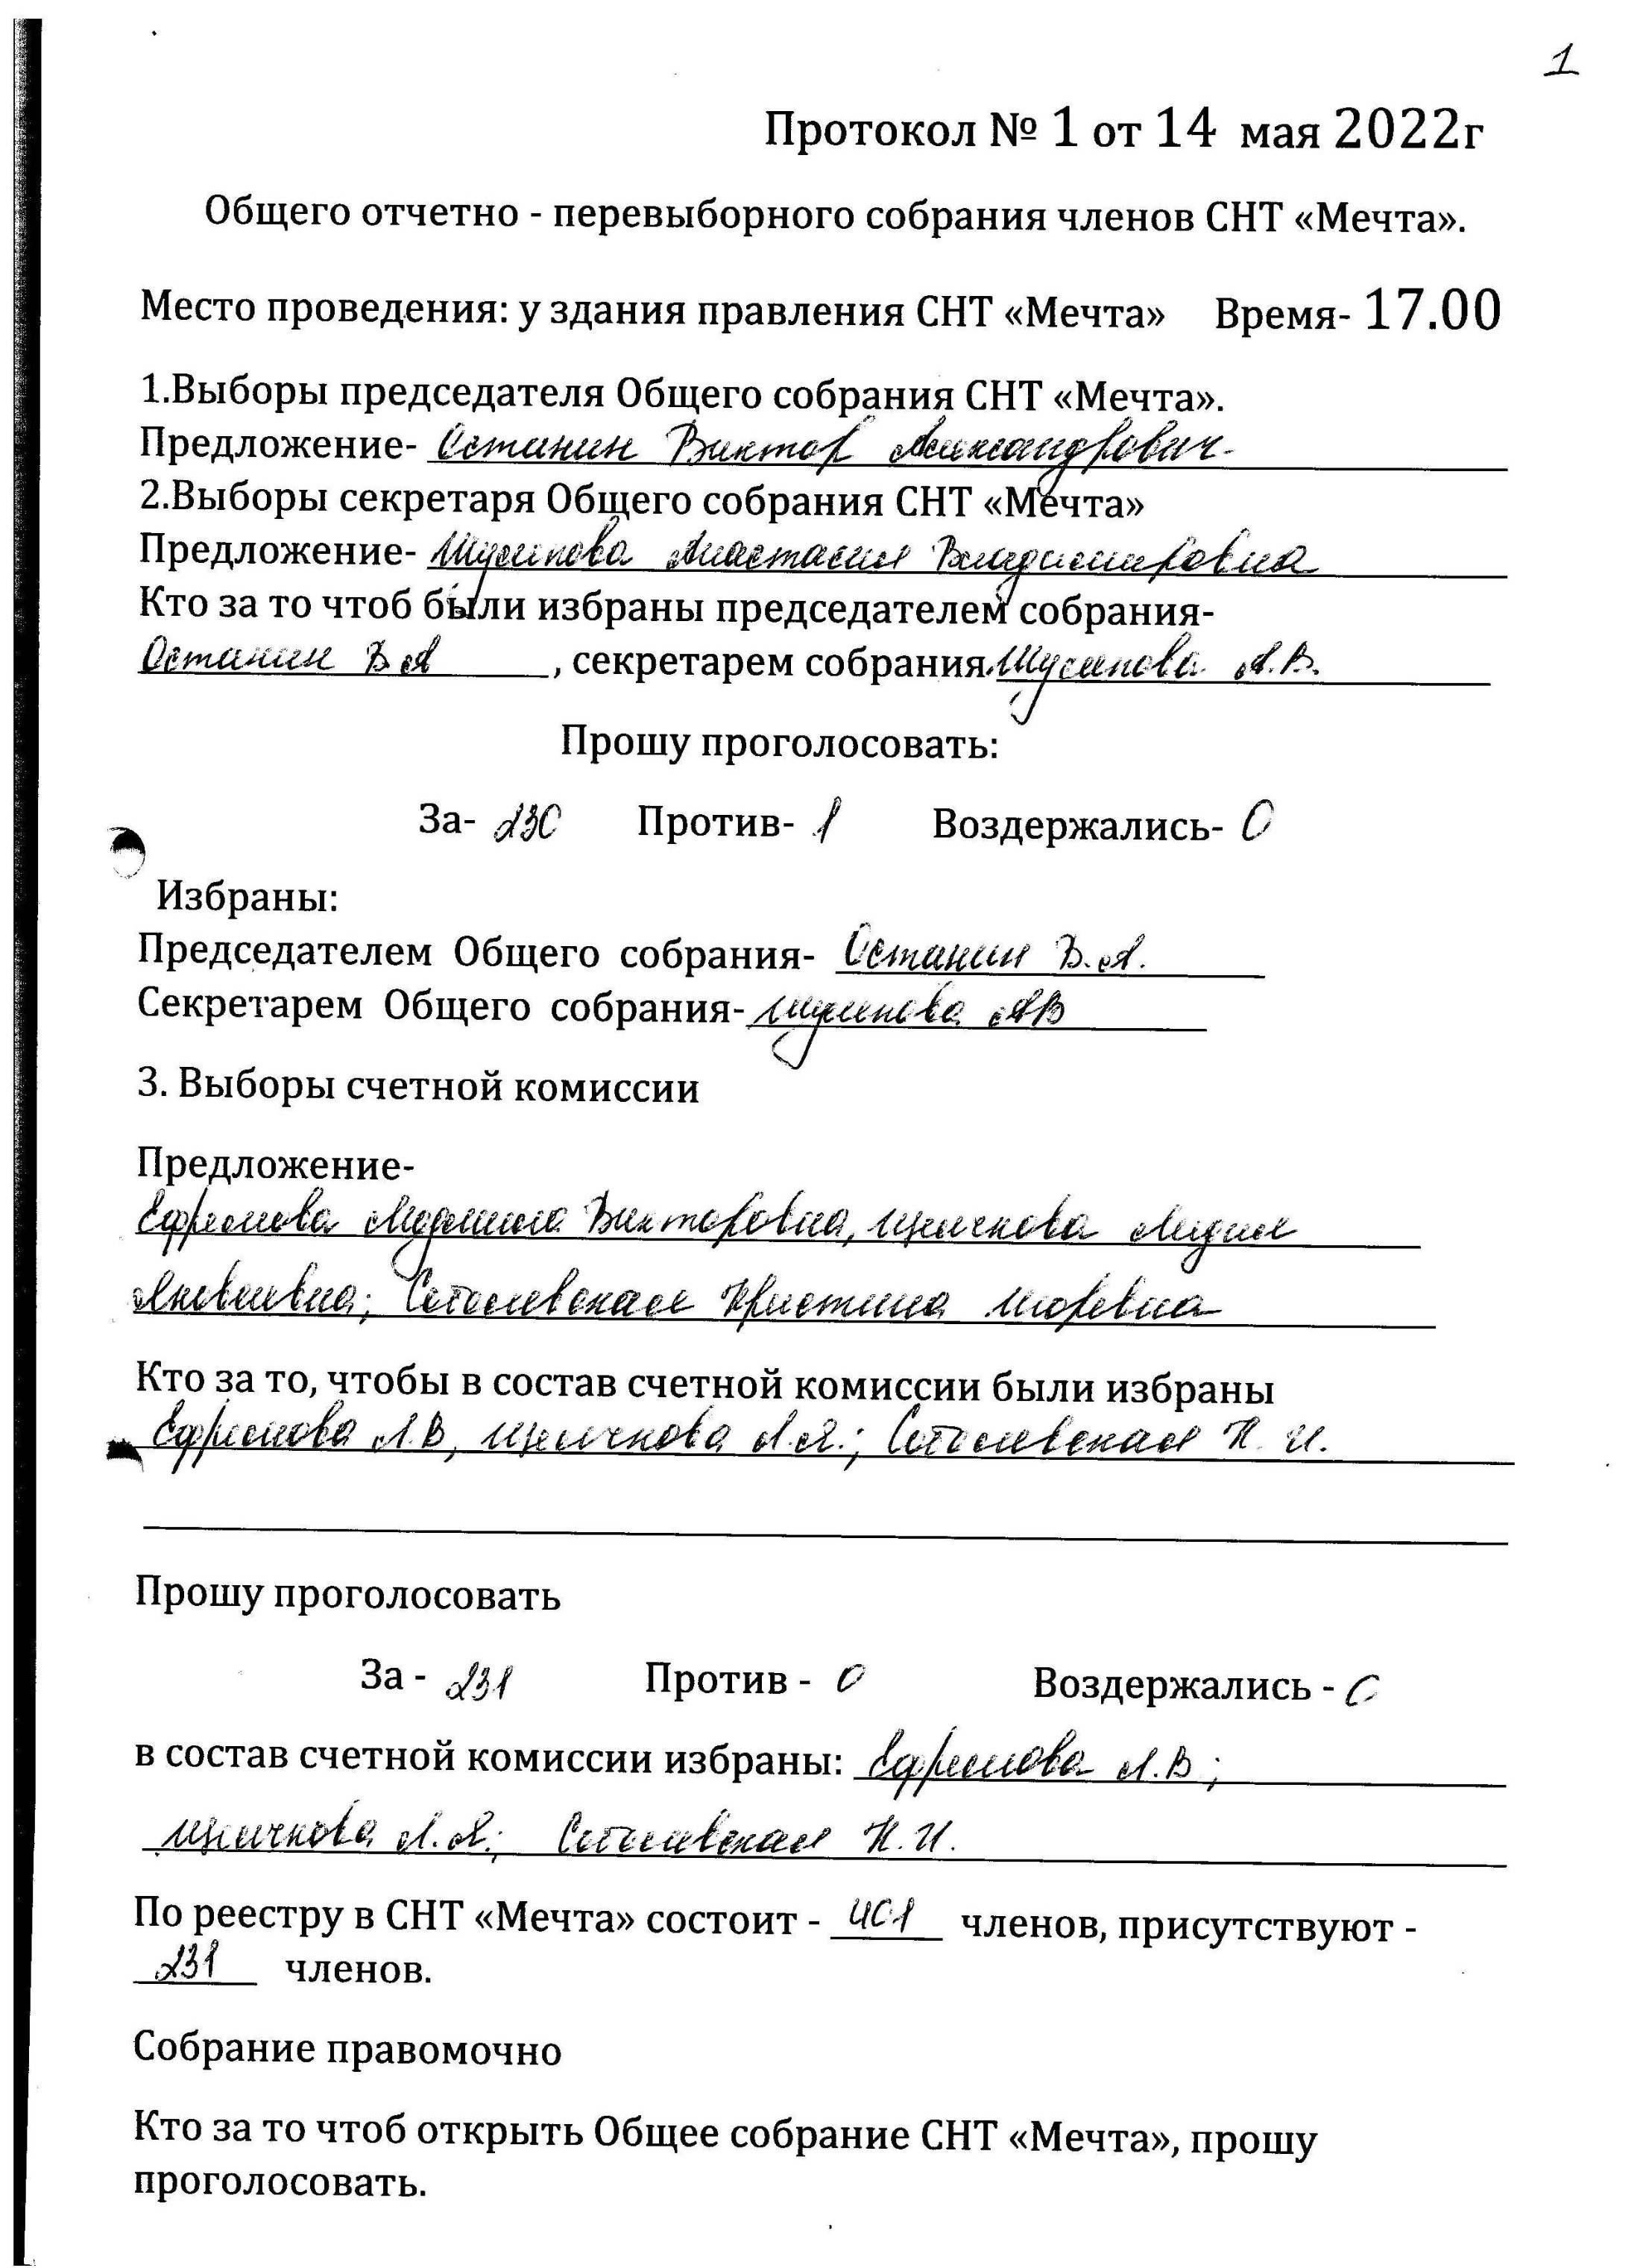 1
Протокол № 1 от 14 мая 2022г
Общего отчетно - перевыборного собрания членов СНТ «Мечта».
Место проведения: у здания правления СНТ «Мечта» Время- 17.00
1.Выборы председателя Общего собрания СНТ «Мечта».
Предложение- Останин Виктор Александрович
2.Выборы секретаря Общего собрания СНТ «Мечта»
Предложение- Мусипова Анастасия Владимировна
Кто за то чтоб были избраны председателем собрания-
Останин В А , секретарем собрания Мусипова А.В.
Прошу проголосовать:
За- 230 Против- 1 Воздержались- 0
Избраны:
Председателем Общего собрания- Останин В.А.
Секретарем Общего собрания- Мусипова АВ
3. Выборы счетной комиссии
Предложение-
Ефремова Людмила Викторовна, Лидия
Яковлевна; Соболевская Кристина Игоревна
Кто за то, чтобы в состав счетной комиссии были избраны
Ефремова Л.В, Л.Я.; Соболевская К. И.
Прошу проголосовать
За - 231 Против - 0 Воздержались - 0
в состав счетной комиссии избраны: Ефремова Л.В ;
Л.Я; Соболевская К.И.
По реестру в СНТ «Мечта» состоит - 401 членов, присутствуют -
231 членов.
Собрание правомочно
Кто за то чтоб открыть Общее собрание СНТ «Мечта», прошу
проголосовать.